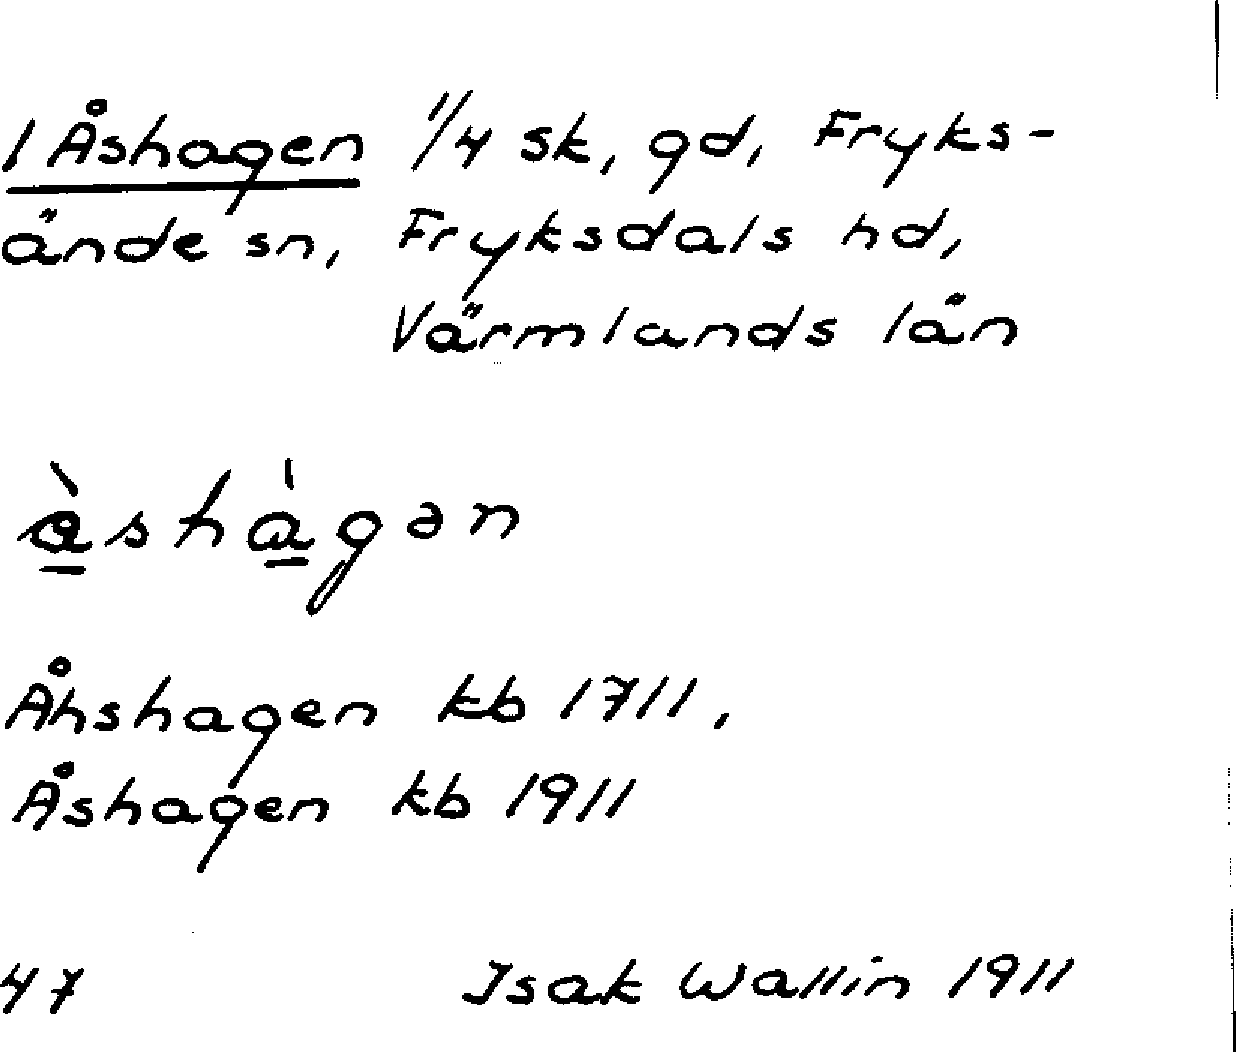 1 Åshagen 1/4 sk, gd, Fryks-
ände sn, Fryksdals hd,
Värmlands lån
à̱sha̱̍gən
Åhshagen kb 1711,
Åshagen kb 1911
47 Isak Wallin 1911